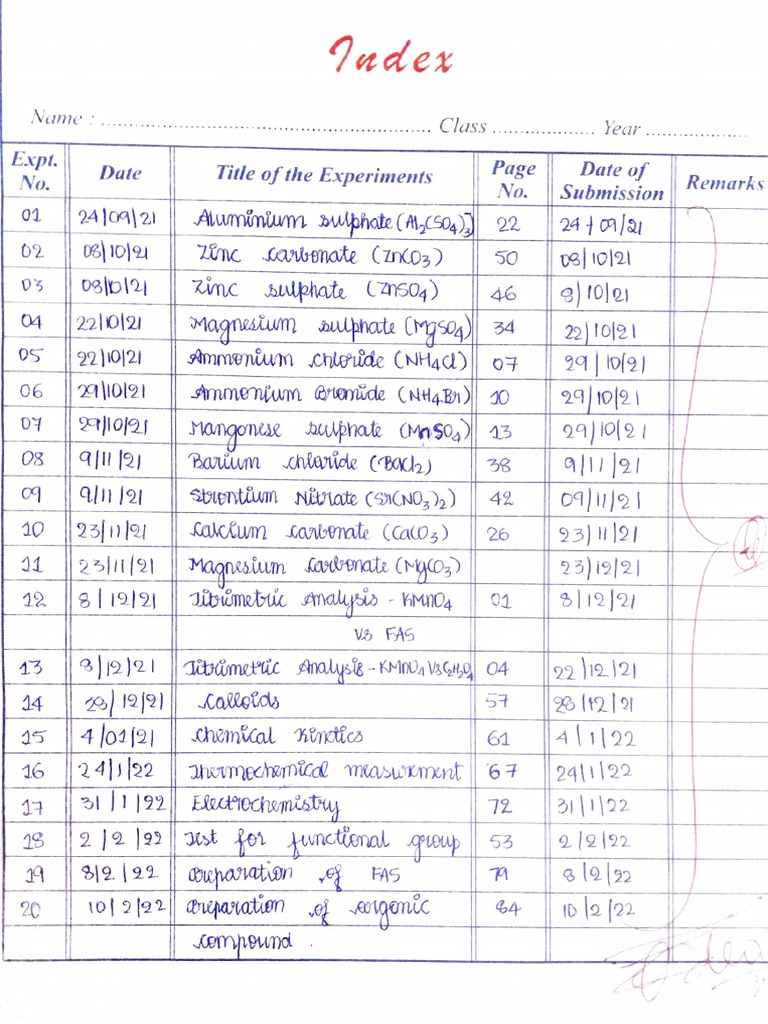 Index
Name : ........................................................ Class ................... Year ...................
Expt. No. Date Title of the Experiments Page No. Date of Submission Remarks
01 24/09/21 Aluminium sulphate (Al2(SO4)3] 22 24/09/21
02 08/10/21 Zinc carbonate (ZnCO3) 50 08/10/21
03 08/10/21 Zinc sulphate (ZnSO4) 46 8/10/21
04 22/10/21 Magnesium sulphate (MgSO4) 34 22/10/21
05 22/10/21 Ammonium chloride (NH4Cl) 07 29/10/21
06 29/10/21 Ammonium Bromide (NH4Br) 10 29/10/21
07 29/10/21 Mangonese sulphate (MnSO4) 13 29/10/21
08 9/11/21 Barium chloride (BaCl2) 38 9/11/21
09 9/11/21 Strontium Nitrate (Sr(NO3)2) 42 09/11/21
10 23/11/21 Calcium carbonate (CaCO3) 26 23/11/21
11 23/11/21 Magnesium carbonate (MgCO3) 23/12/21
12 8/12/21 Titrimetric Analysis - KMnO4 01 8/12/21
VS FAS
13 8/12/21 Titrimetric Analysis - KMnO4 VS C2H2O4 04 22/12/21
14 28/12/21 Calloids 57 28/12/21
15 4/01/21 Chemical Kindics 61 4/1/22
16 24/1/22 Thermochemical measurment 67 24/1/22
17 31/1/22 Electrochemistry 72 31/1/22
18 2/2/22 Test for functional group 53 2/2/22
19 8/2/22 Preparation of FAS 79 8/2/22
20 10/2/22 Preparation of organic 84 10/2/22
compound.